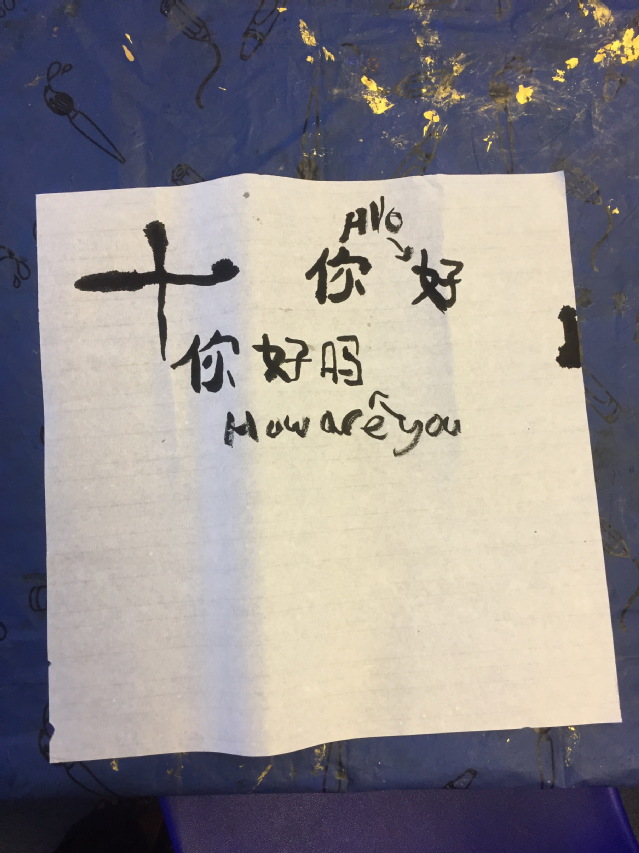 Hllo
十 你 好
你好吗
How are you